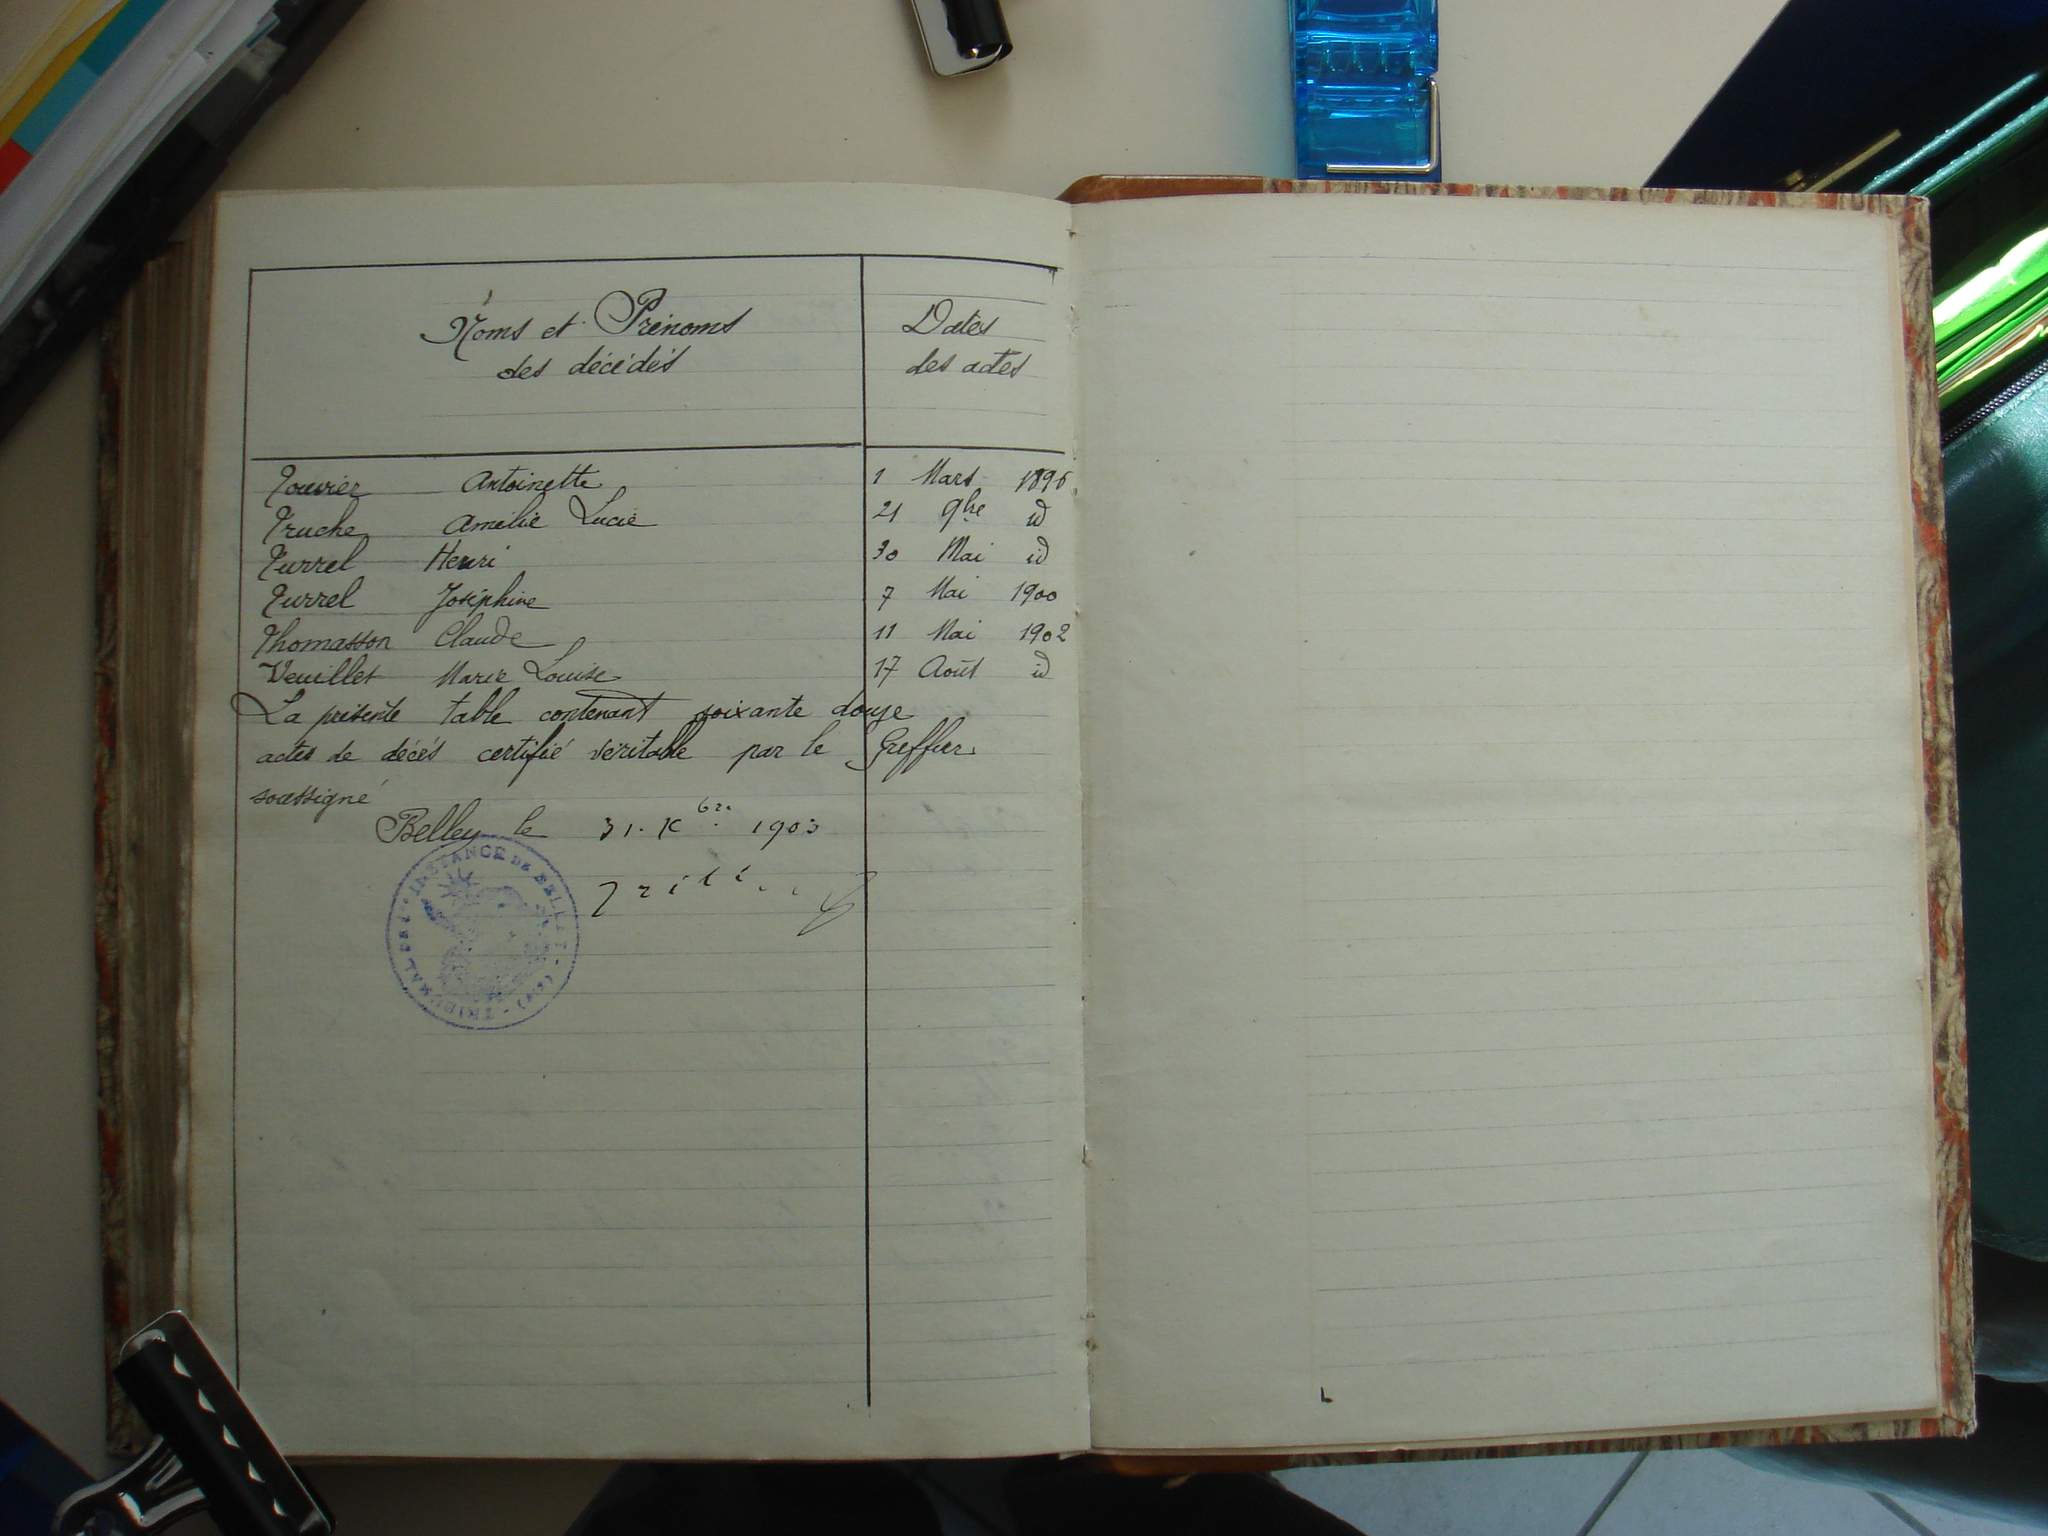 Noms et Prénoms
des décédés
Dates
des actes
Touvier Antoinette 1 Mars 1896
Truche Amélie Lucie 21 9bre id
Turrel Henri 30 Mai id
Turrel Joséphine 7 Mai 1900
Thomasson Claude 11 Mai 1902
Veuillet Marie Louise 17 Août id
La présente table contenant soixante douze
actes de décès certifié véritable par le Greffier
soussigné
Belley le 31. Xbre 1903
TRIBUNAL DE 1re INSTANCE DE BELLEY (AIN)